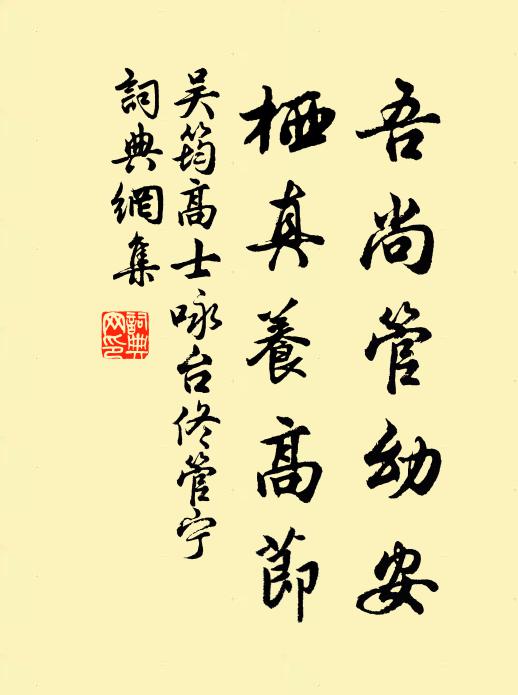 吾尚管幼安
栖真養高節
吴筠高士咏台佟管宁
詞典網集
詞典网印